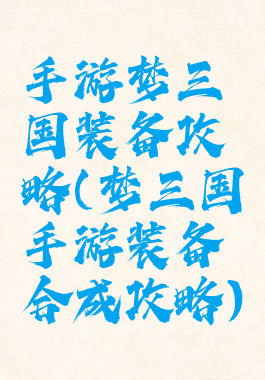 手游梦三
国装备攻
略(梦三国
手游装备
合成攻略)